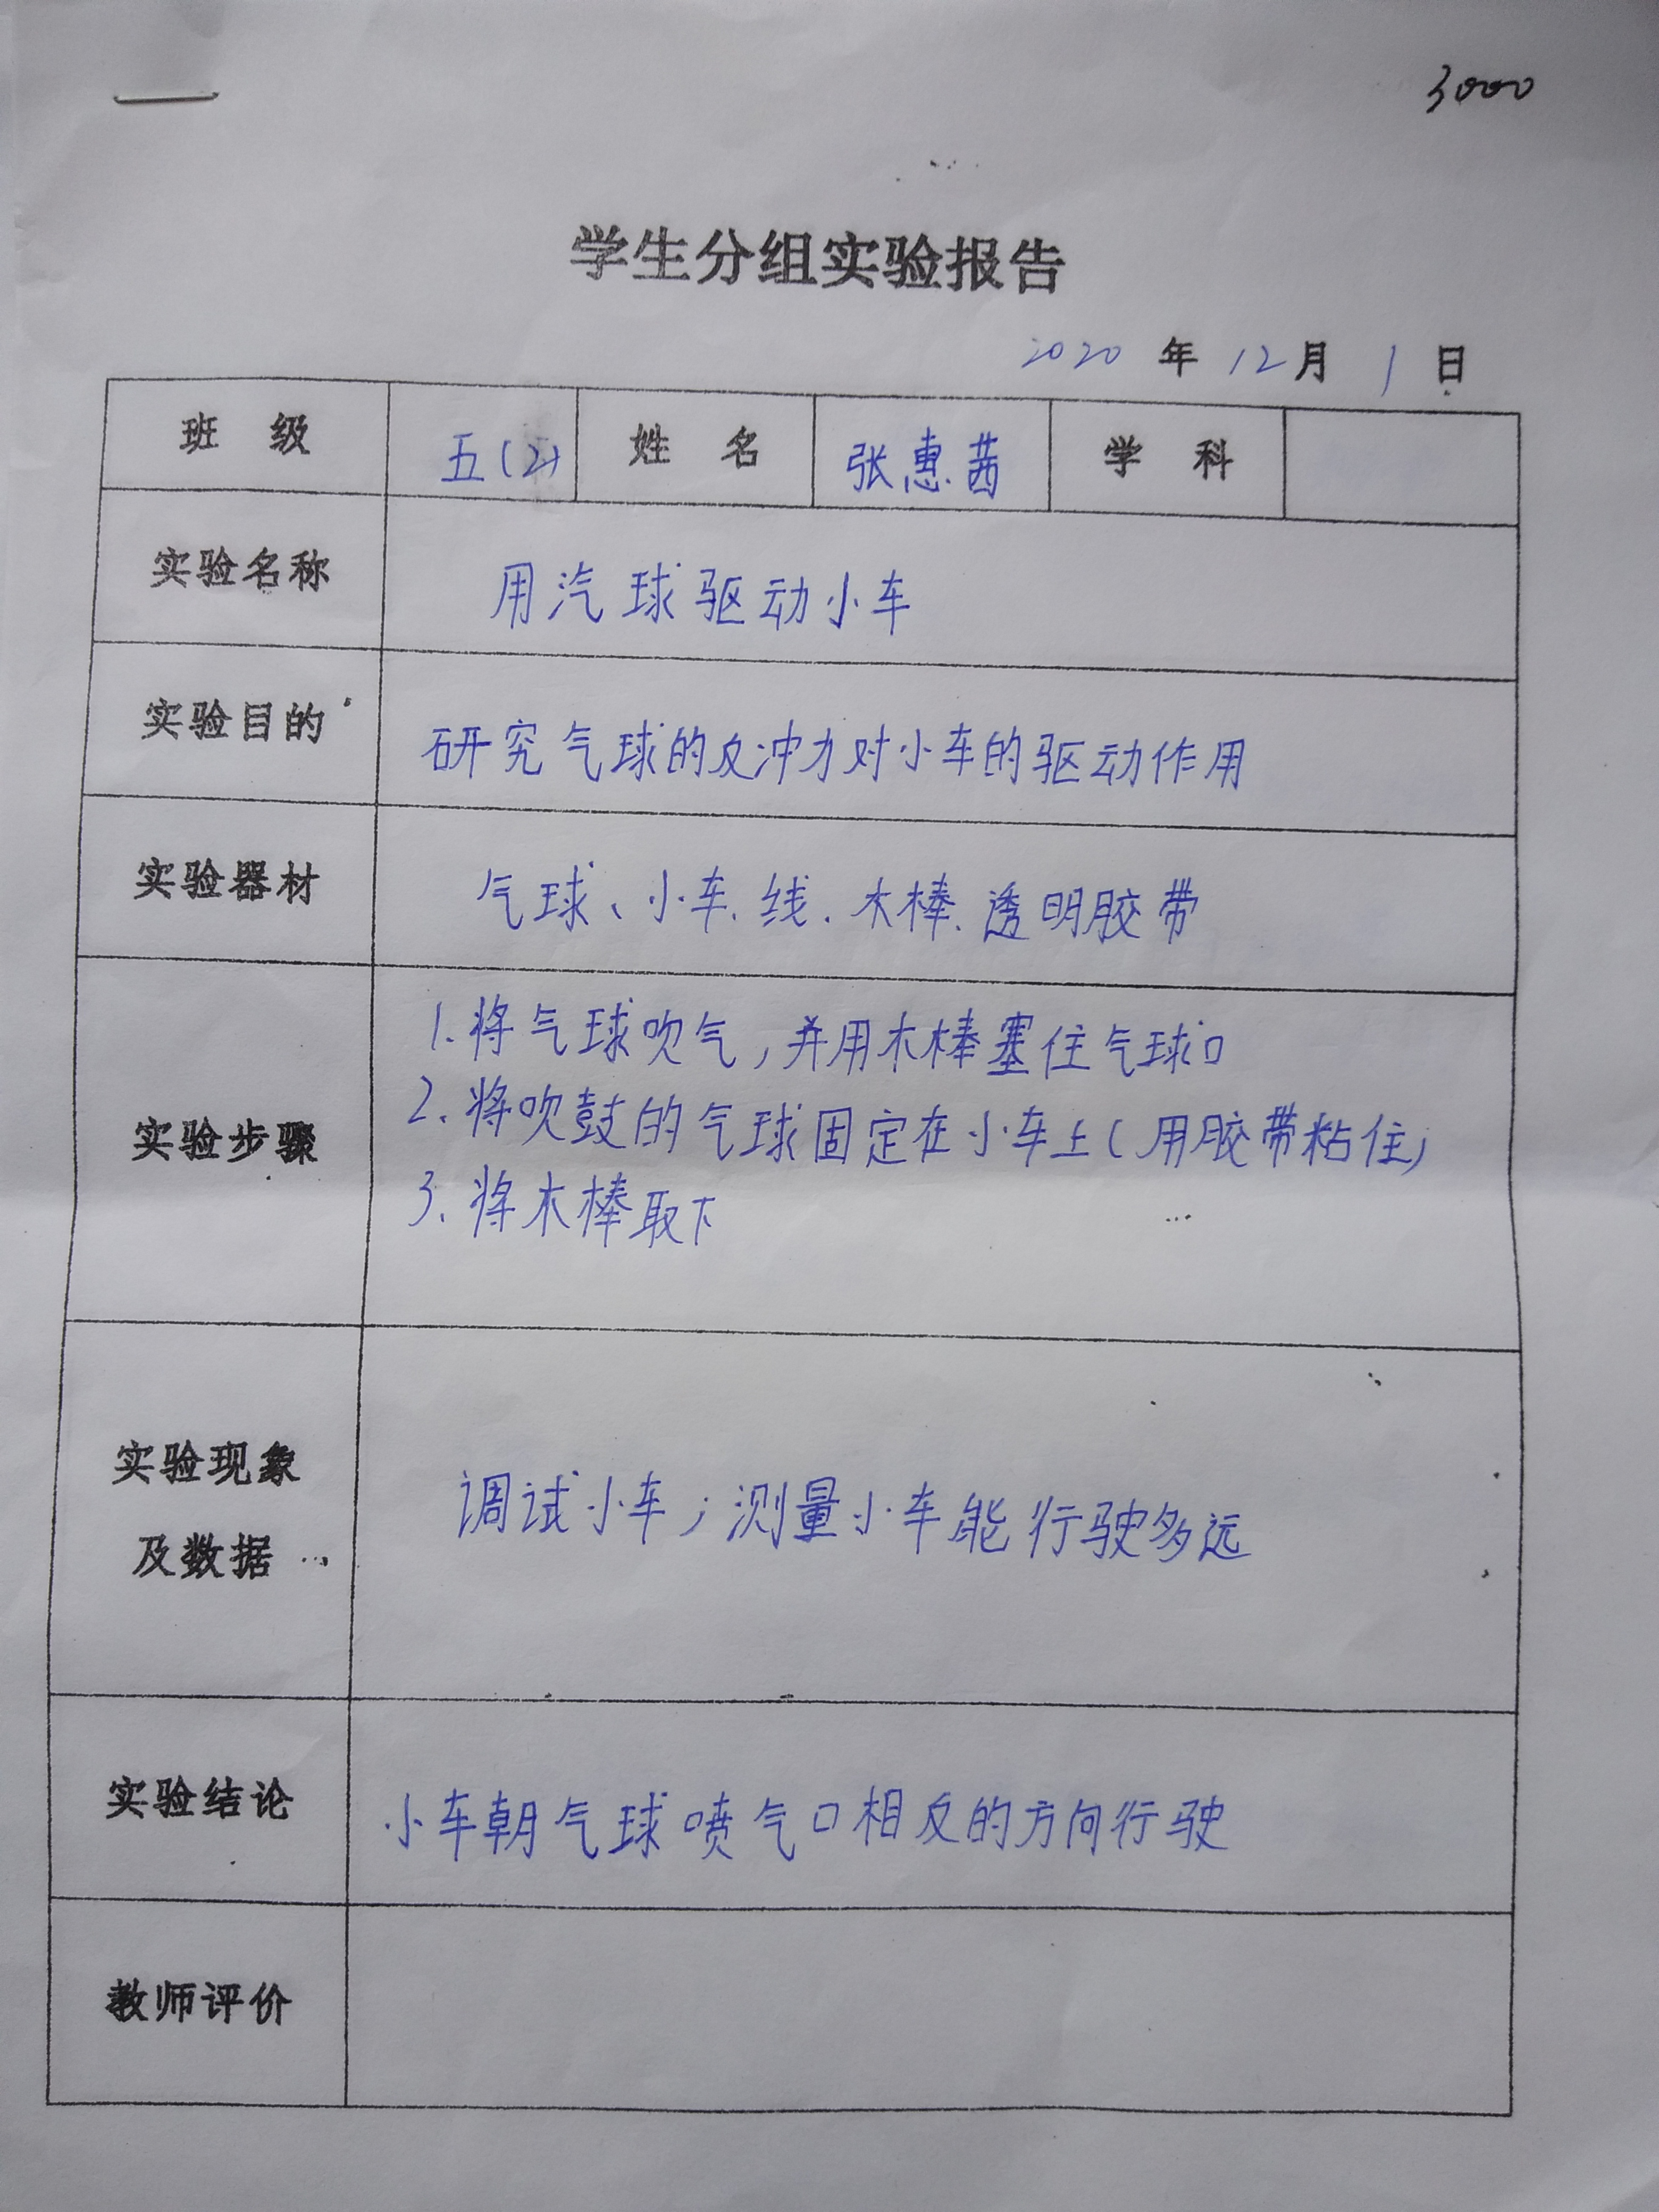 3000
学生分组实验报告
2020 年 12月 1 日
班 级 五(2) 姓 名 张惠茜 学 科
实验名称 用汽球驱动小车
实验目的 研究气球的反冲力对小车的驱动作用
实验器材 气球、小车、线、木棒、透明胶带
实验步骤
1.将气球吹气,并用木棒塞住气球口
2.将吹鼓的气球固定在小车上(用胶带粘住)
3.将木棒取下
实验现象
及数据
调试小车;测量小车能行驶多远
实验结论 小车朝气球喷气口相反的方向行驶
教师评价